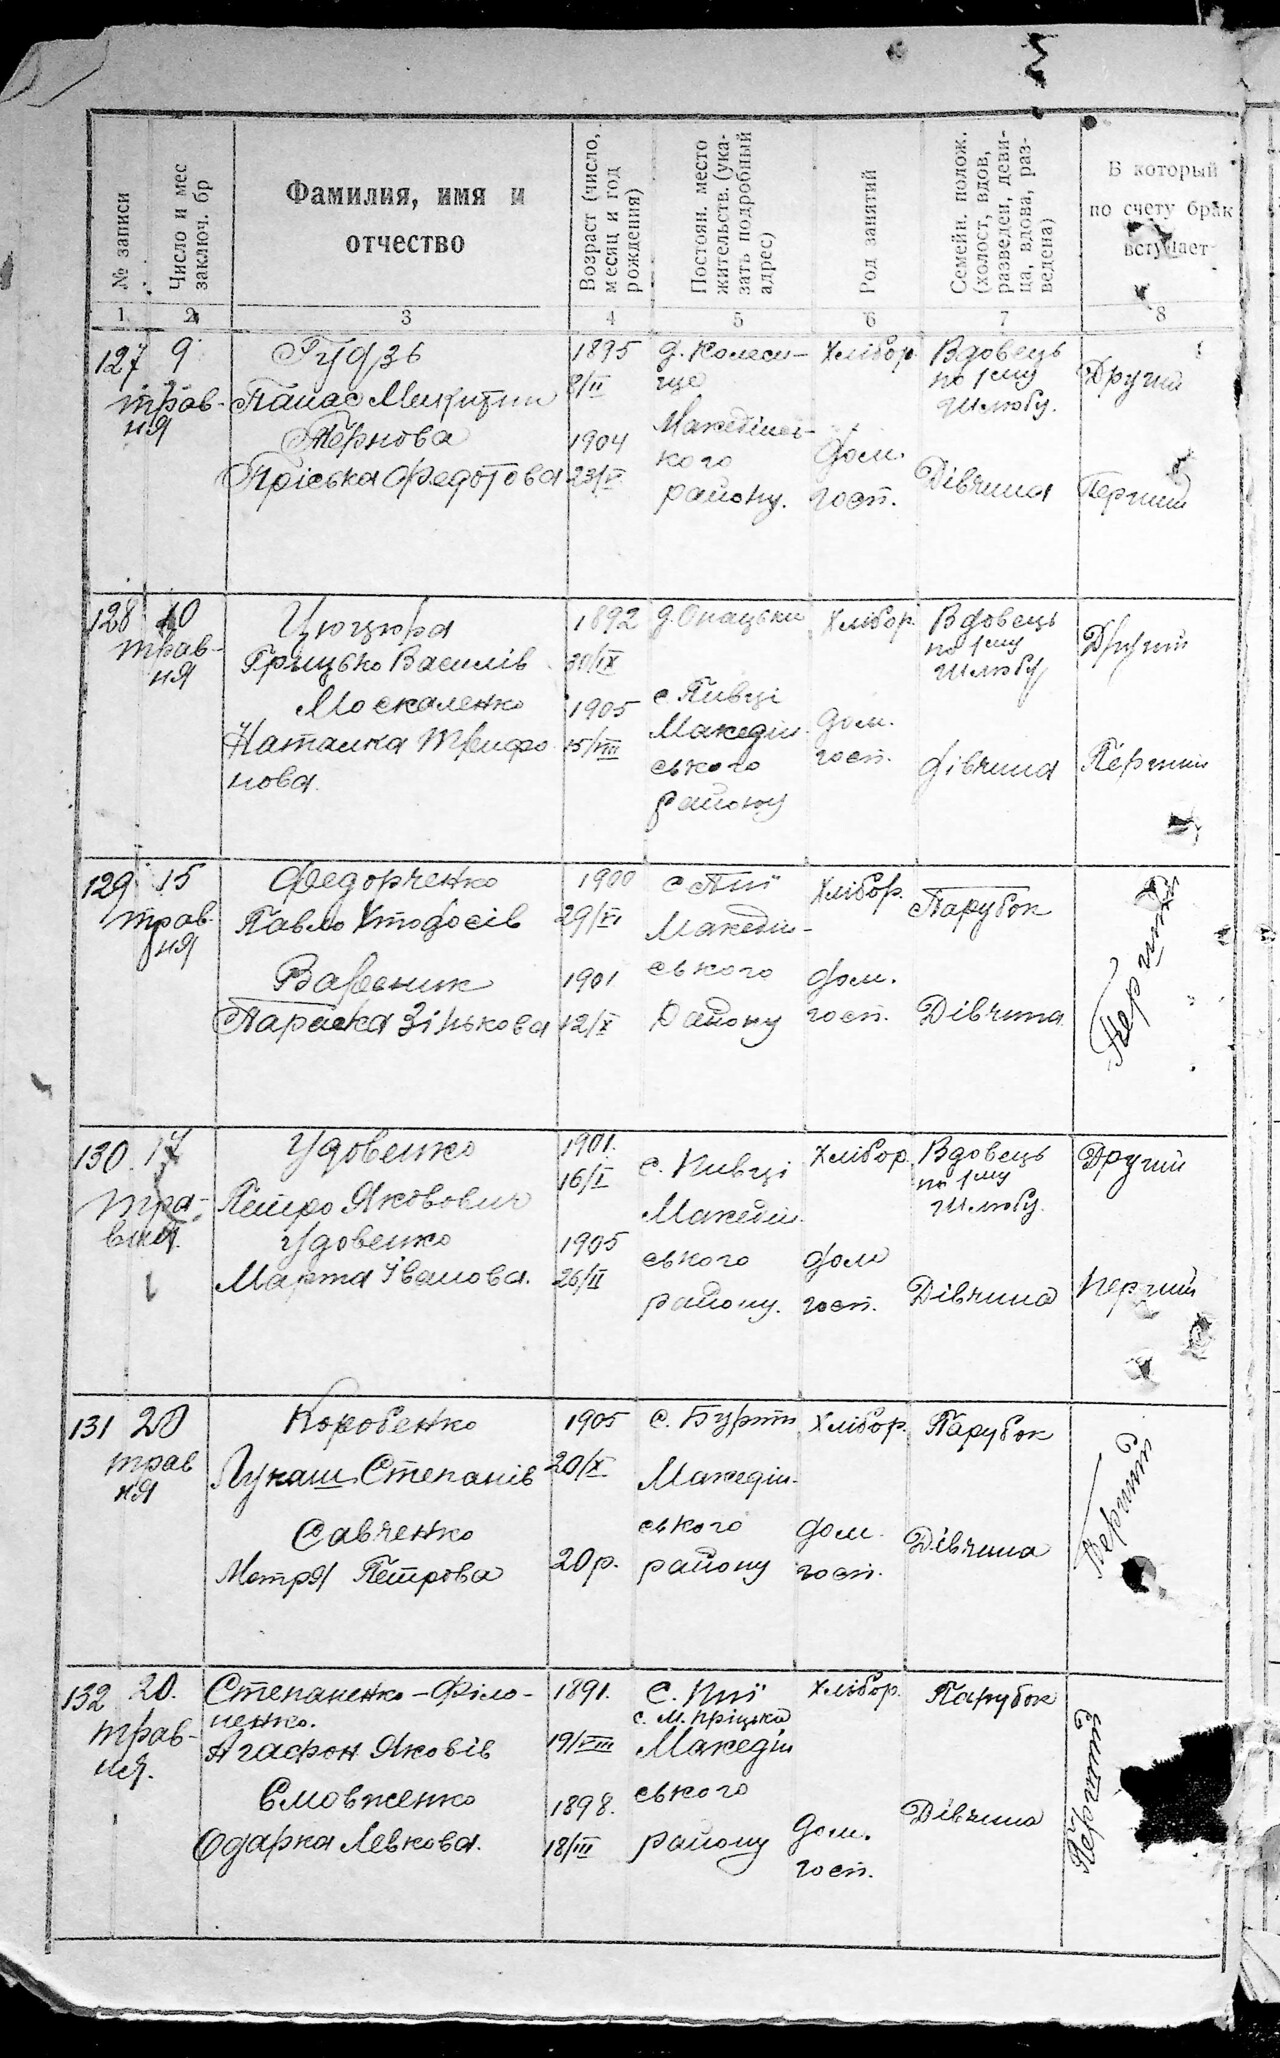 № записи
Число и мес
заключ. бр
Фамилия, имя и
отчество
Возраст (число,
месяц и год
рождения)
Постоян. место
жительств. (ука-
зать подробный
адрес)
Род занятий
Семейн. полож.
(холост, вдов,
разведен, деви-
ца, вдова, раз-
ведена)
В который
по счету брак
вступает
1 2 3 4 5 6 7 8
127
9
трав-
ня
Гудзь
Панас Микитин
Тернова
Пріська Федотова
1895
8/II
1904
23/V
д. Колеси-
ще
Македінсь-
кого
району.
Хлібор
дом.
госп.
Вдовець
по 1му
шлюбу.
Дівчина
Другий
Перший
128
10
трав-
ня
Цюцюра
Грицько Василів
Москаленко
Наталка Трифо
нова.
1892
30/IX
1905
15/VIII
д. Опацьки
с. Пивці
Македін
ського
району
Хлібор
дом.
госп.
Вдовець
по 1му
шлюбу
дівчина
Другий
Перший
129
15
трав-
ня
Федорченко
Павло Хтодосів
Вареник
Параска Зінькова
1900
29/VI
1901
12/X
с Пії
Македін-
ського
Району
Хлібор.
дом.
госп.
Парубок
Дівчина
Перший
130.
17
тра-
вня.
Удовенко
Петро Якович
Удовенко
Марта Іванова.
1901.
16/I
1905
26/II
с. Пивці
Македін.
ського
району.
Хлібор.
дом
госп.
Вдовець
по 1му
шлюбу.
Дівчина
Другий
Перший
131
20
трав
ня
Коробенко
Лукаш Степанів
Савченко
Мотря Петрова
1905
20/X
20р.
с. Бурти
Македін.
ського
району
Хлібор.
дом.
госп.
Парубок
Дівчина
Перший
132
20.
трав-
ня.
Степаненко-Філо-
ненко.
Агафон Яковів
Ємовженко
Одарка Левкова.
1891.
19/VIII
1898.
18/III
С. Пії
с. М. Пріцьки
Македін
ського
району
Хлібор.
дом.
госп.
Парубок
Дівчина
Перший